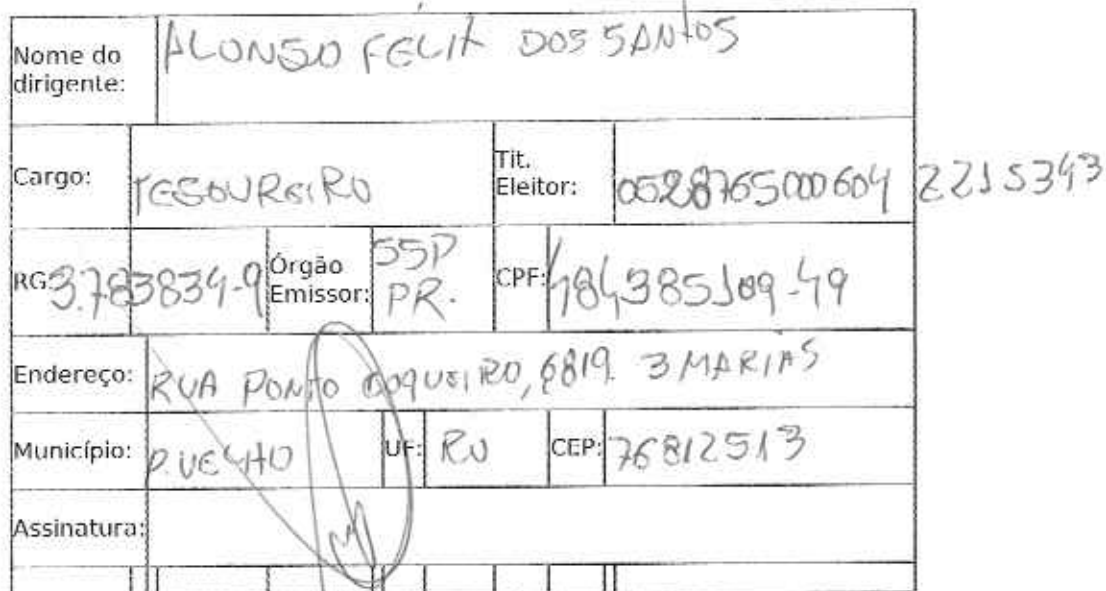 Nome do dirigente: ALONSO FELIX DOS SANTOS
Cargo: TESOUREIRO Tit. Eleitor: 052876500604 2215343
RG: 3.783834-9 Órgão Emissor: SSP PR. CPF: 484385109-49
Endereço: RUA PONTO COQUEIRO, 6819. 3 MARIAS
Município: P. VELHO UF: RO CEP: 76812513
Assinatura: